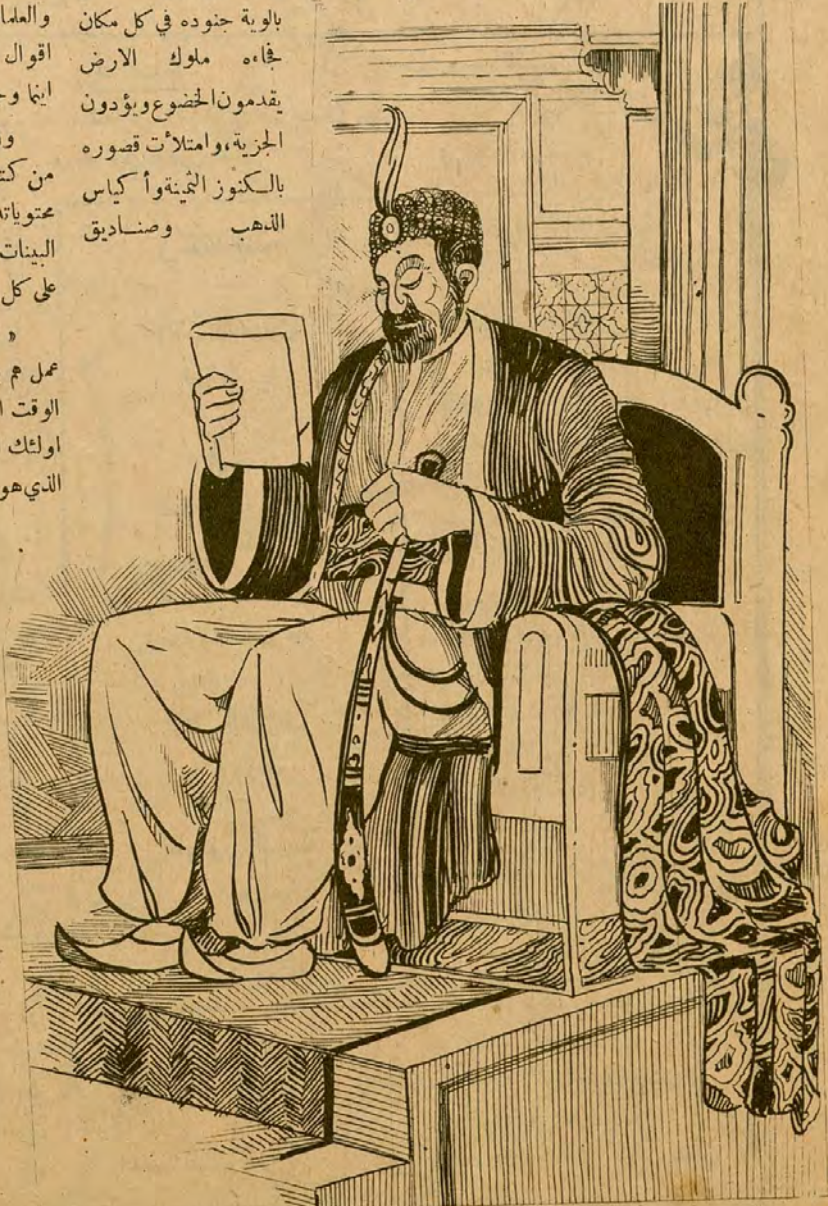 بالوية جنوده في كل مكان
فجاءه ملوك الارض
يقدمون الخضوع ويؤدون
الجزية، وامتلأت قصوره
بالكنوز الثمينة وأكياس
الذهب وصناديق
والعلما
اقوال
اينما وج
و
من كت
محتوياته
البينات
على كل
«
عمل هم
الوقت ا
اولئك
الذي هو